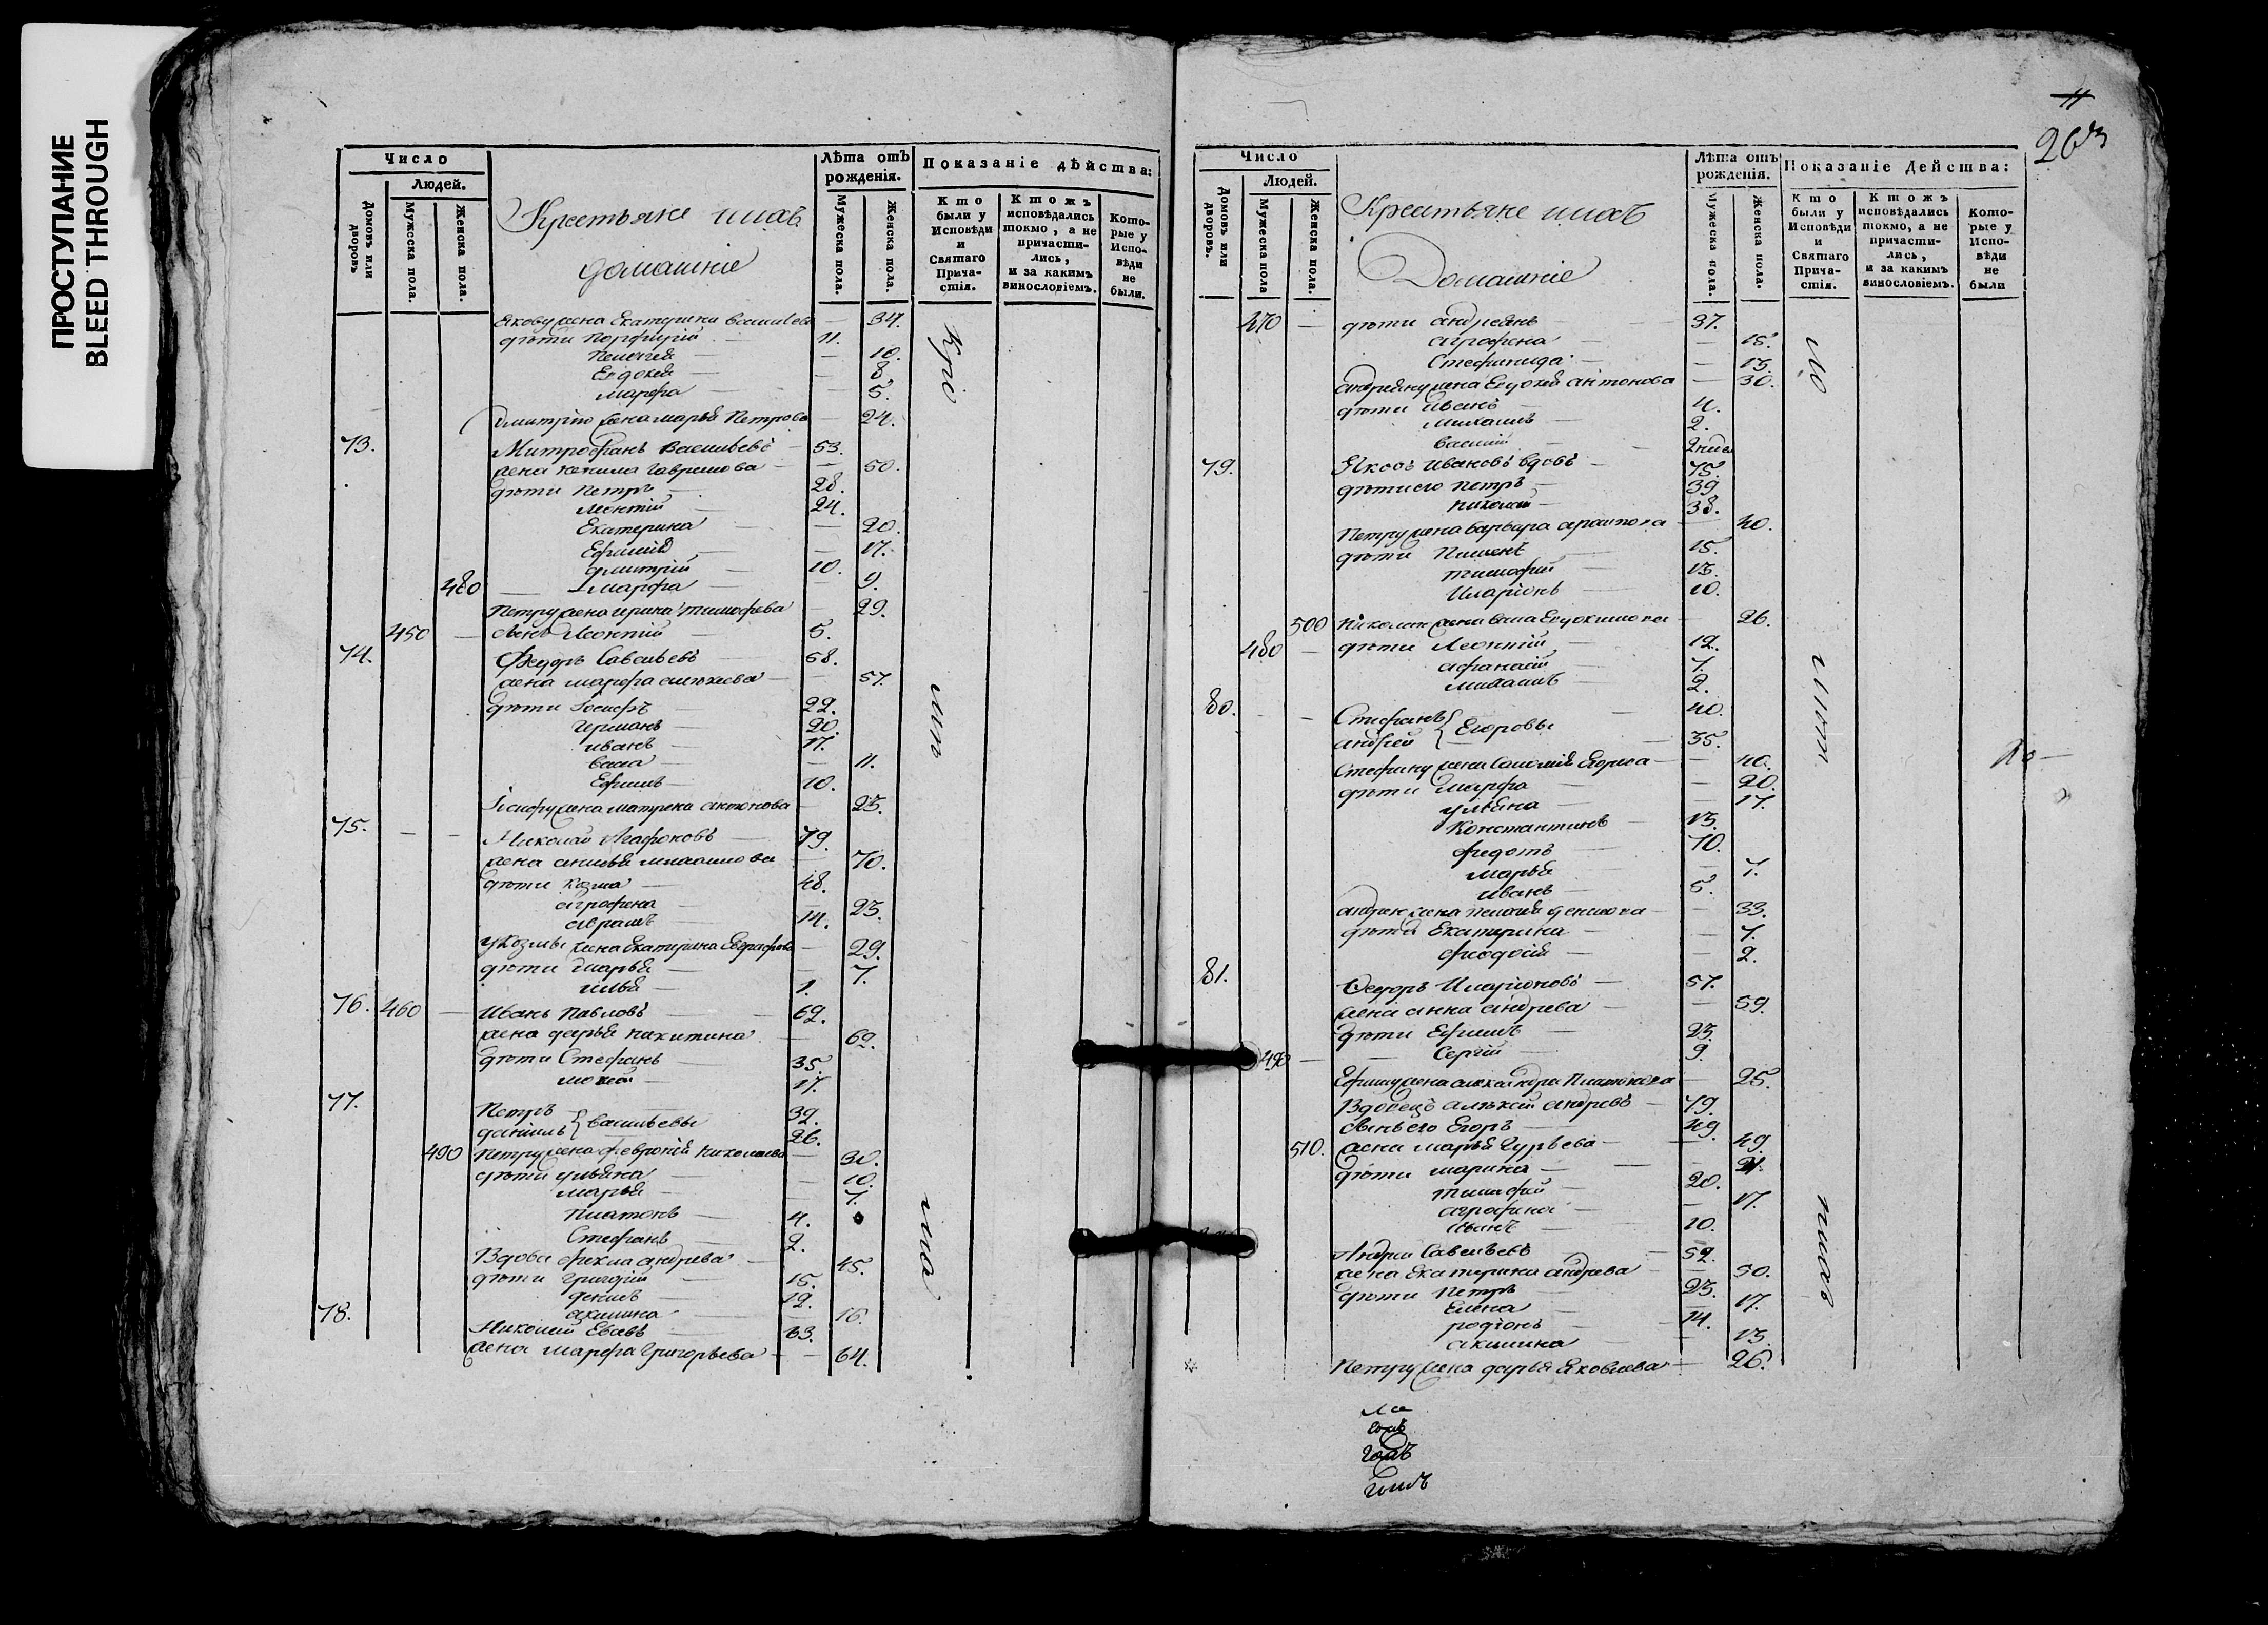 ПРОСТУПАНИЕ
BLEED THROUGH
Число
Людей.
Домовъ или дворовъ
Мужеска пола.
Женска пола.
Крестьяне и ихъ
домашніе
Лѣта отъ рожденія.
Мужеска пола.
Женска пола.
Показаніе дѣйства:
Кто были у Исповѣди и Святаго Причастія.
Ктожъ исповѣдались токмо, а не причастились, и за какимъ винословіемъ.
Которые у Исповѣди не были.
Якову жена Екатерина Васильева — 34.
дѣти Порфирій — 11.
Пелагея — 10.
Евдокея — 8
Марфа — 5.
Дмитрію жена Марья Петрова — 24.
73. Митрофанъ Васильевъ — 53.
жена Гаврилова — 50.
дѣти Петръ — 28.
Леонтій — 24.
Екатерина — 20.
Ефимія — 17.
Дмитрій — 10.
480 — Марфа — 9.
Петру жена Ирина Тимофева — 29.
450 — сынъ Леонтій — 5.
74. Федоръ Савельевъ — 58.
жена Марфа Алексева — 57.
дѣти Іосифъ — 22.
Германъ — 20.
Иванъ — 17.
Васса — 11.
Ефимъ — 10.
Іосифу жена Матрена Антонова — 23.
75. — — Николай Агафоновъ — 79.
жена — 70.
дѣти Козма — 48.
Агрофена — 23.
Абрамъ — 14.
у Козмы жена Екатерина Евграфова — 29.
дѣти Марья — 7.
Илья — 1.
76. 460 — Иванъ Павловъ — 62.
жена Дарья Никитина — 62.
дѣти Стефанъ — 35.
Мокей — 17.
77. Петръ — 32.
Даніилъ } Васильевы 26.
490 Петру жена Февронія Николаева — 30.
дѣти Ульяна — 10.
Марья — 7.
Платонъ — 4.
Стефанъ — 2.
Вдова Фекла Андрева — 45.
дѣти Григорій — 15.
Денисъ — 12.
Акилина — 16.
78. Николай — 63.
жена Марфа Григорьева — 64.
11
Число
Людей.
Домовъ или дворовъ.
Мужеска пола
Женска пола.
Крестьяне и ихъ
Домашніе
Лѣта отъ рожденія.
Мужеска пола.
Женска пола.
Показаніе Действа:
Кто были у Исповѣди и Святаго Причастія.
Ктожъ исповѣдались токмо, а не причастились, и за какимъ винословіемъ.
Которые у Исповѣди не были
470 — дѣти Андреянъ — 37.
Агрофена — 15.
Стефанида — 13.
Андреяну жена Евдокея Антонова — 30.
дѣти Иванъ — 4.
Михаилъ — 2.
79. Яковъ Ивановъ вдовъ — 75.
дѣти его Петръ — 39
Николай — 38.
Петру жена Варвара — 40.
дѣти Пименъ — 15.
Тимофей — 13.
Иларіонъ — 10.
500 Николаю жена Васса Евдокимова — 26.
480 — дѣти Леонтій — 12.
Афанасій — 7.
Михаилъ — 2.
80. — — Стефанъ — 40.
Андрей } Егоровы — 35.
Стефану жена Егорова — 40.
дѣти Марфа — 20.
Ульяна — 17.
Константинъ — 13.
Федотъ — 10.
Марья — 7.
Иванъ — 5.
Андрею жена Пелагея Денисова — 33.
дѣти Екатерина — 7.
Феодосія — 2.
81. Федоръ Иларіоновъ — 57.
жена Анна Андрева — 59.
дѣти Ефимъ — 23.
490 — Сергій — 9.
Ефиму жена Александра Платонова — 25.
Вдовецъ Алексей Андревъ — 79.
сынъ его Егоръ — 49
510. жена Марья Гурьева — 49.
дѣти Марина — 21.
Тимофей — 20.
Агрофена — 17.
Иванъ — 10.
Андрей Савельевъ — 52.
жена Екатерина Андрева — 50.
дѣти Петръ — 23.
Елена — 17.
Родіонъ — 14.
Акилина — 13.
Петру жена Дарья Яковлева — 26.